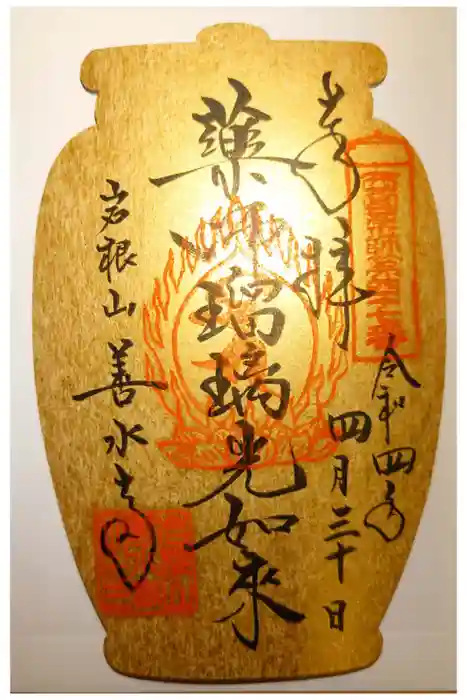 奉拝
令和四年
四月三十日
薬師瑠璃光如来
岩根山 善水寺